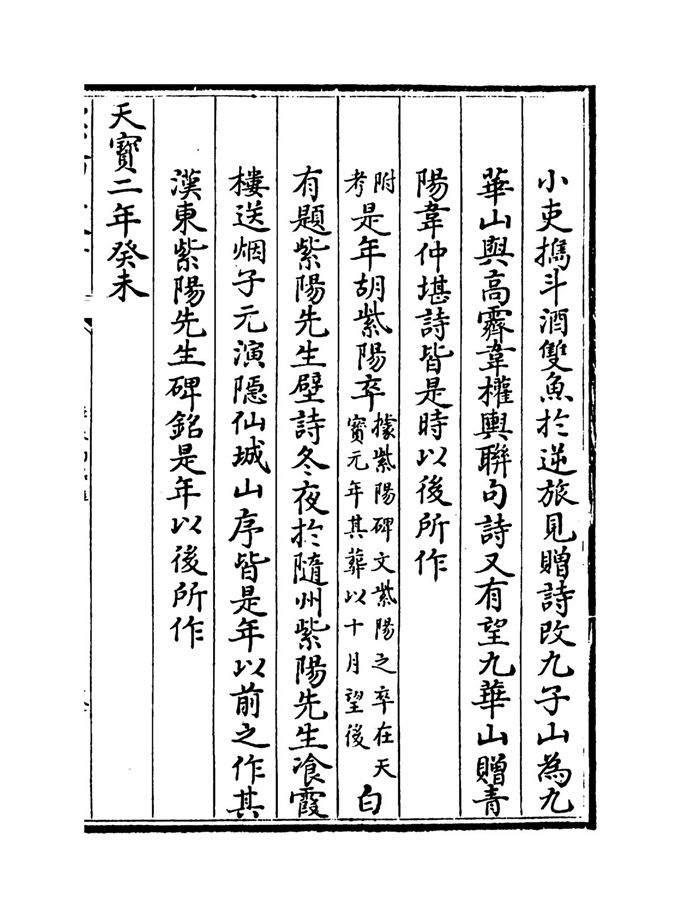 小吏擕斗酒雙魚於逆旅見贈詩改九子山為九
華山與高霽韋權輿聯句詩又有望九華山贈青
陽韋仲堪詩皆是時以後所作
附考是年胡紫陽卒據紫陽碑文紫陽之卒在天寳元年其葬以十月望後白
有題紫陽先生壁詩冬夜於隨州紫陽先生飡霞
樓送烟子元演隠仙城山序皆是年以前之作其
漢東紫陽先生碑銘是年以後所作
天寳二年癸未